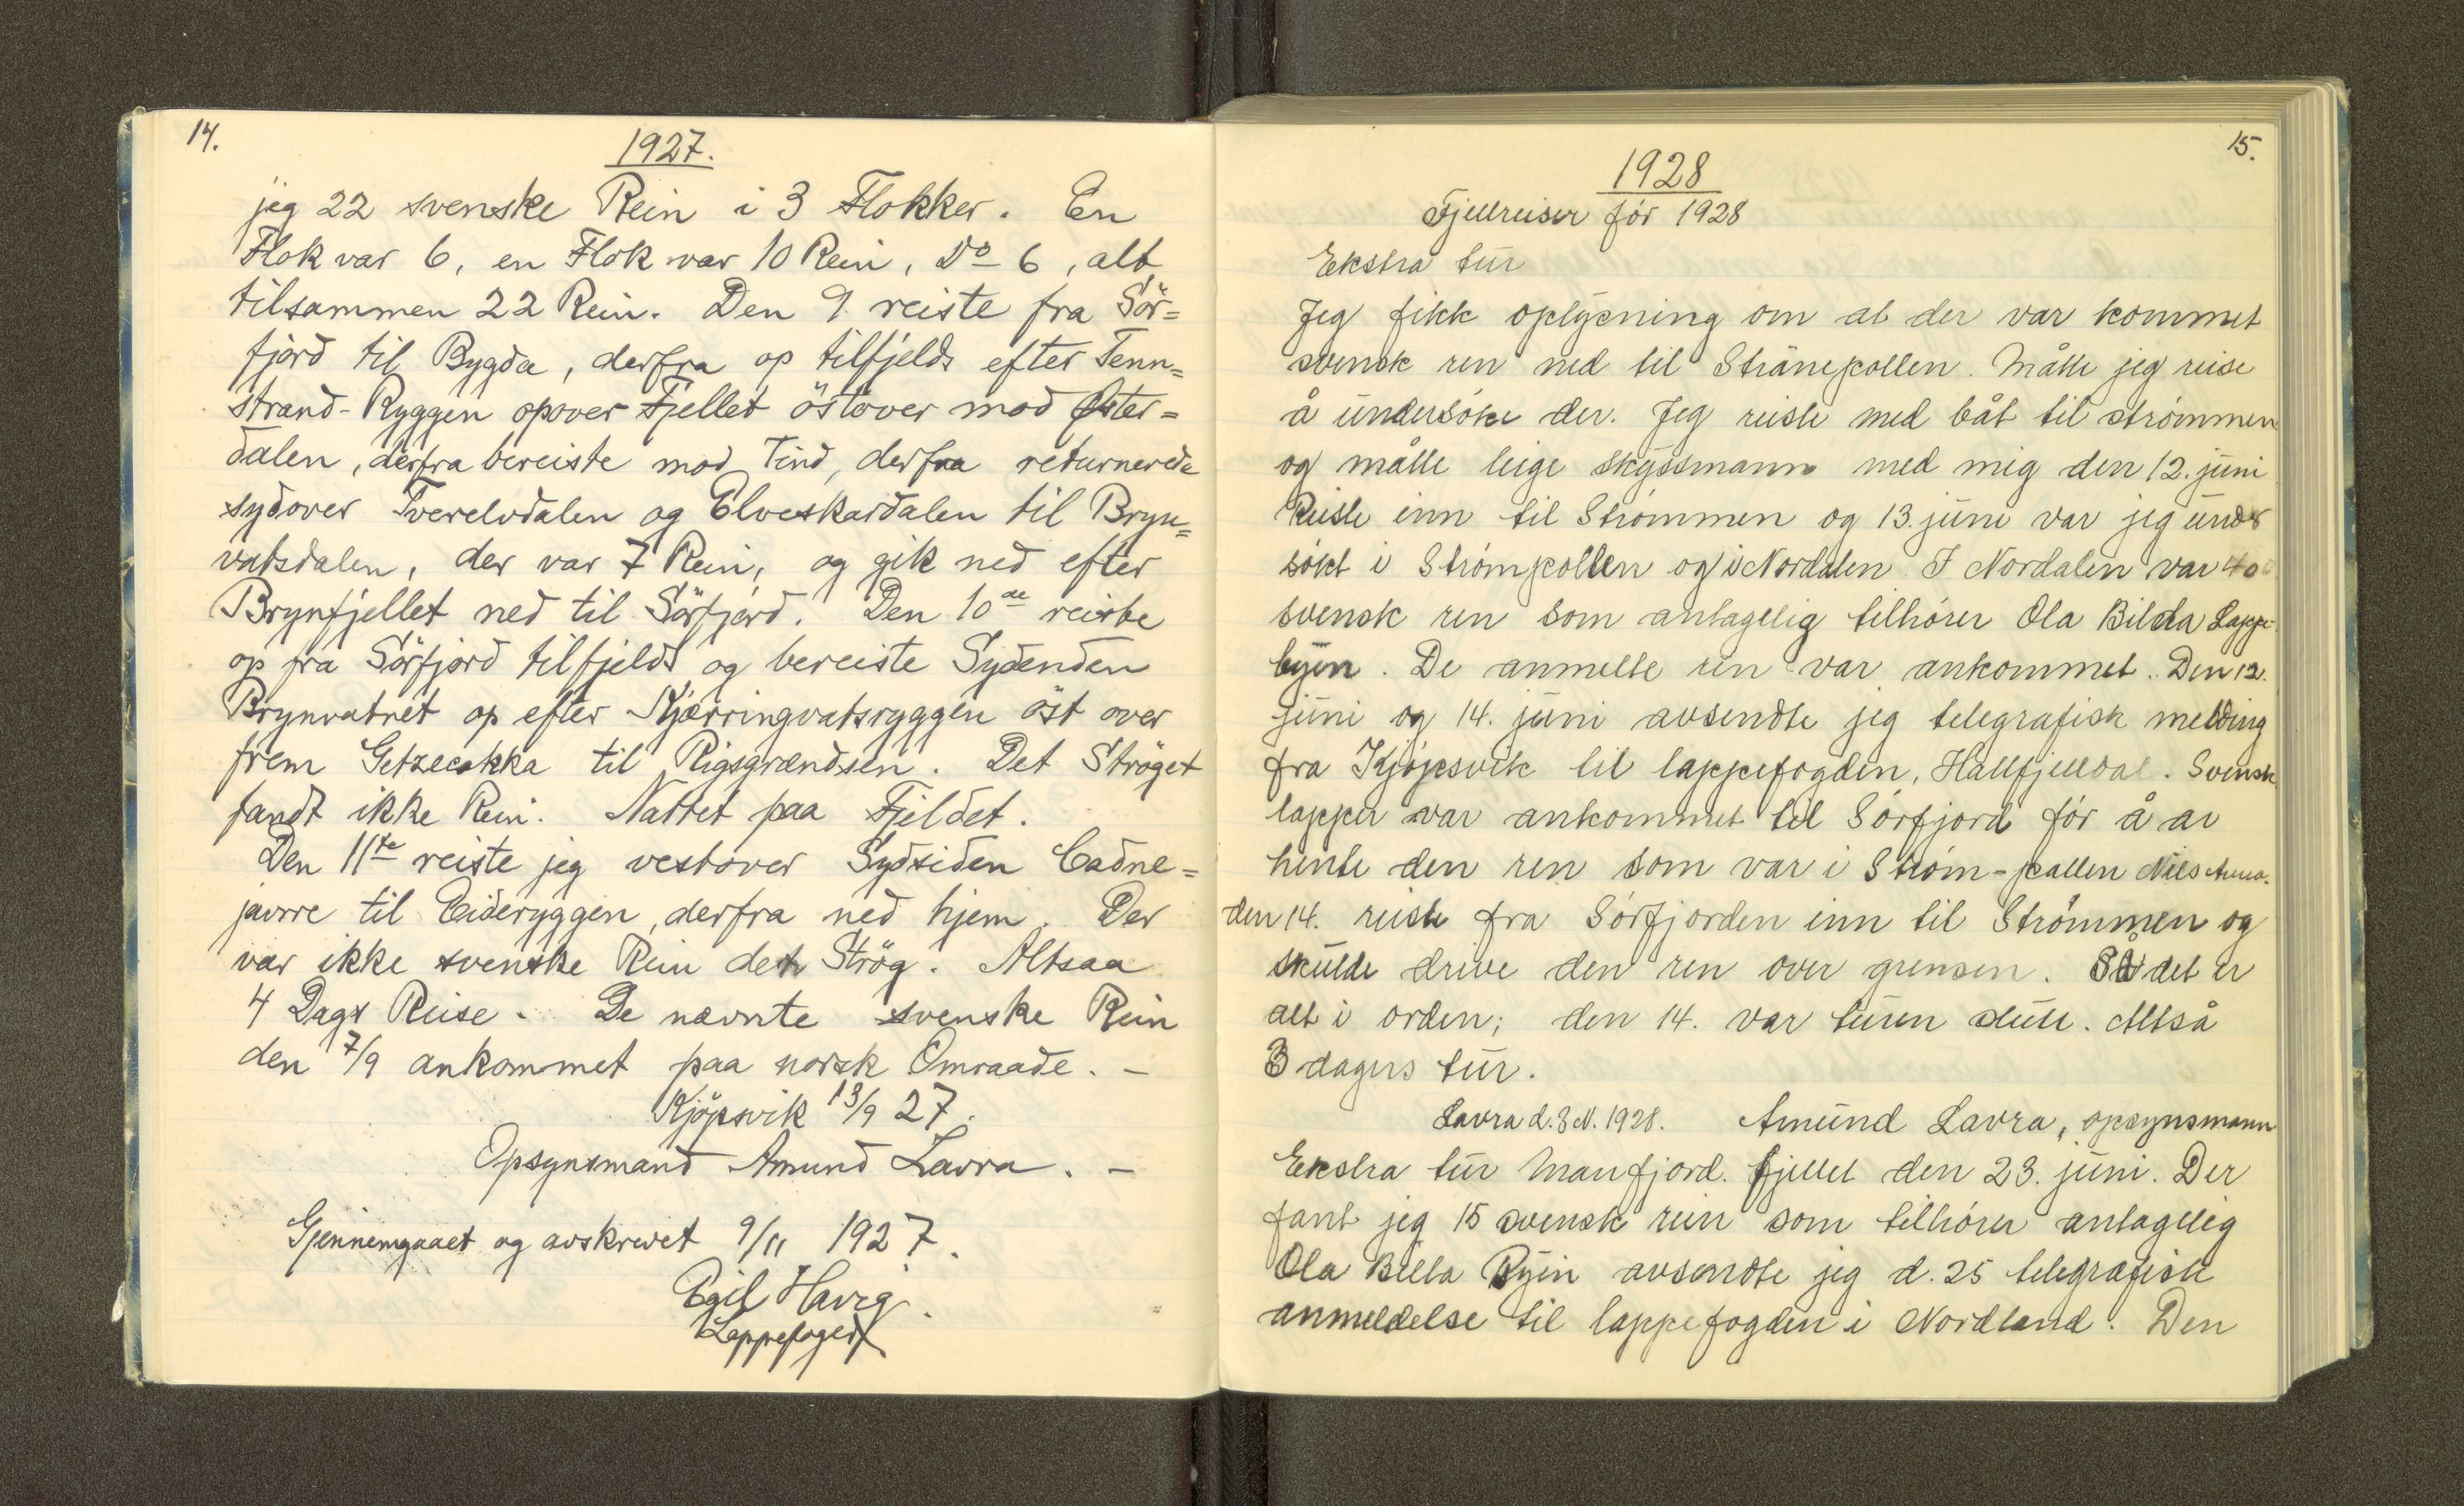 14.
1927.
jeg 22 svenske Rein i 3 Flokker. En
Flok var 6, en Flok var 10 Rein, Do 6, alt
tilsammen 22 Rein. Den 9. reiste fra Sör=
fjord til Bygda, derfra op tilfjelds efter Tenn=
strand-Ryggen opover Fjellet östover mod Öster=
dalen, derfra bereiste mod Tind, derfra returnerede
sydover Tverelvdalen og Elveskardalen til Bryn=
vatsdalen, der var 7 Rein, og gik ned efter
Brynfjellet ned til Sörfjord. Den 10de reiste
op fra Sörfjord tilfjelds og bereiste Sydenden
Brynvatnet op efter Kjærringvatsryggen öst over
frem Getzecokka til Rigsgrændsen. Det Ströget
fandt ikke Rein. Nattet paa Fjeldet.
Den 11te reiste jeg vestover Sydsiden Cadne=
javrre til Eideryggen, derfra ned hjem. Der
var ikke svenske Rein det Strög. Altsaa
4 Dags Reise. De nævnte svenske Rein
den 7/9 ankommet paa norsk Omraade. –
Kjöpsvik 13/9 27.
Opsynsmand Amund Lavra. –
Gjennemgaaet og avskrevet 9/11 1927.
Egil Havig.
Lappefoged
15.
1928
Fjellreiser før 1928
Ekstra tur
Jeg fikk oplysning om at der var kommet
svensk ren ned til Strånepollen. Måtte jeg reise
å undersøke der. Jeg reiste med båt til strømmen
og måtte leige skyssmann med mig den 12. juni
Reiste inn til Strømmen og 13. juni var jeg under
søkt i Strømpollen og i Nordalen. I Nordalen var 40
svensk ren som antagelig tilhører Ola Bilda Lappe-
byen. De anmelte ren var ankommet. Den 12.
juni og 14. juni avsendte jeg telegrafisk melding
fra Kjøpsvik til lappefogden, Hallfjelldal. Svensk
lapper var ankommet til Sørfjord før å av
hente den ren som var i Strøm-pallen Nils
den 14. reiste fra Sørfjorden inn til Strømmen og
skulde drive den ren over grensen. Så det er
alt i orden; den 14. var turen slutt. Altså
3 dagers tur.
Lavra d. 3 1928. Amund Lavra, opsynsmann
Ekstra tur Manfjord. fjellet den 23. juni. Der
fant jeg 15 svensk rein som tilhører antagelig
Ola Bilta Byin avsendte jeg d. 25 telegrafisk
anmeldelse til lappefogden i Nordland. Den